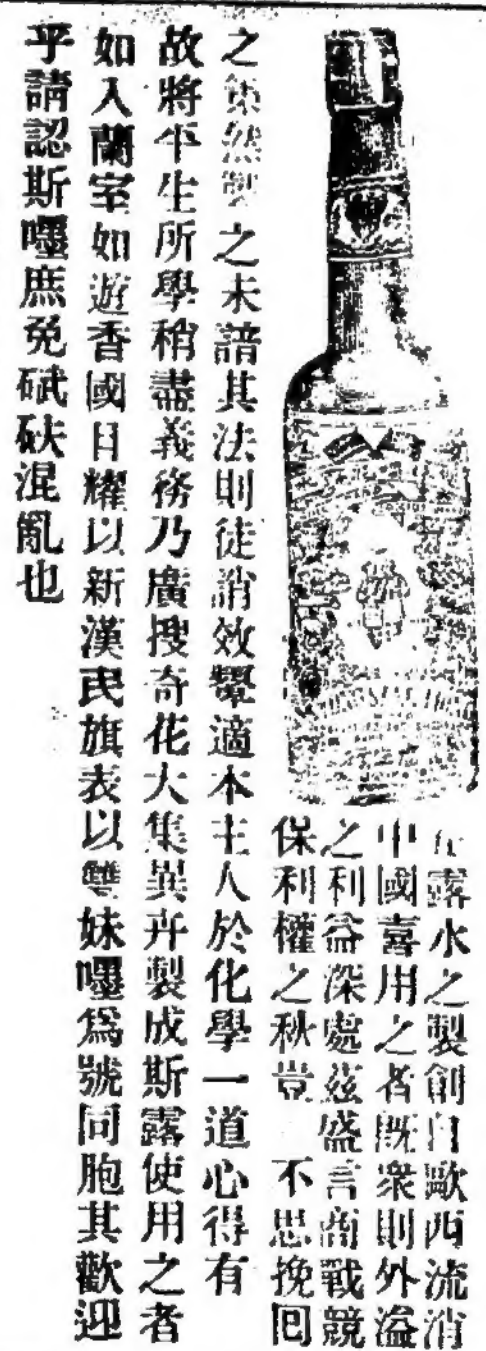 露水之製創自歐西流消
中國喜用之者既衆則外溢
之利益深處茲盛言商戰競
保利權之秋豈 不思挽回
之策然製之未諳其法則徒誚效顰適本主人於化學一道心得有
故將平生所學稍盡義務乃廣搜奇花大集異卉製成斯露使用之者
如入蘭室如遊香國日耀以新漢民旗表以雙妹嚜爲號同胞其歡迎
乎請認斯嚜庶免碔砆混亂也